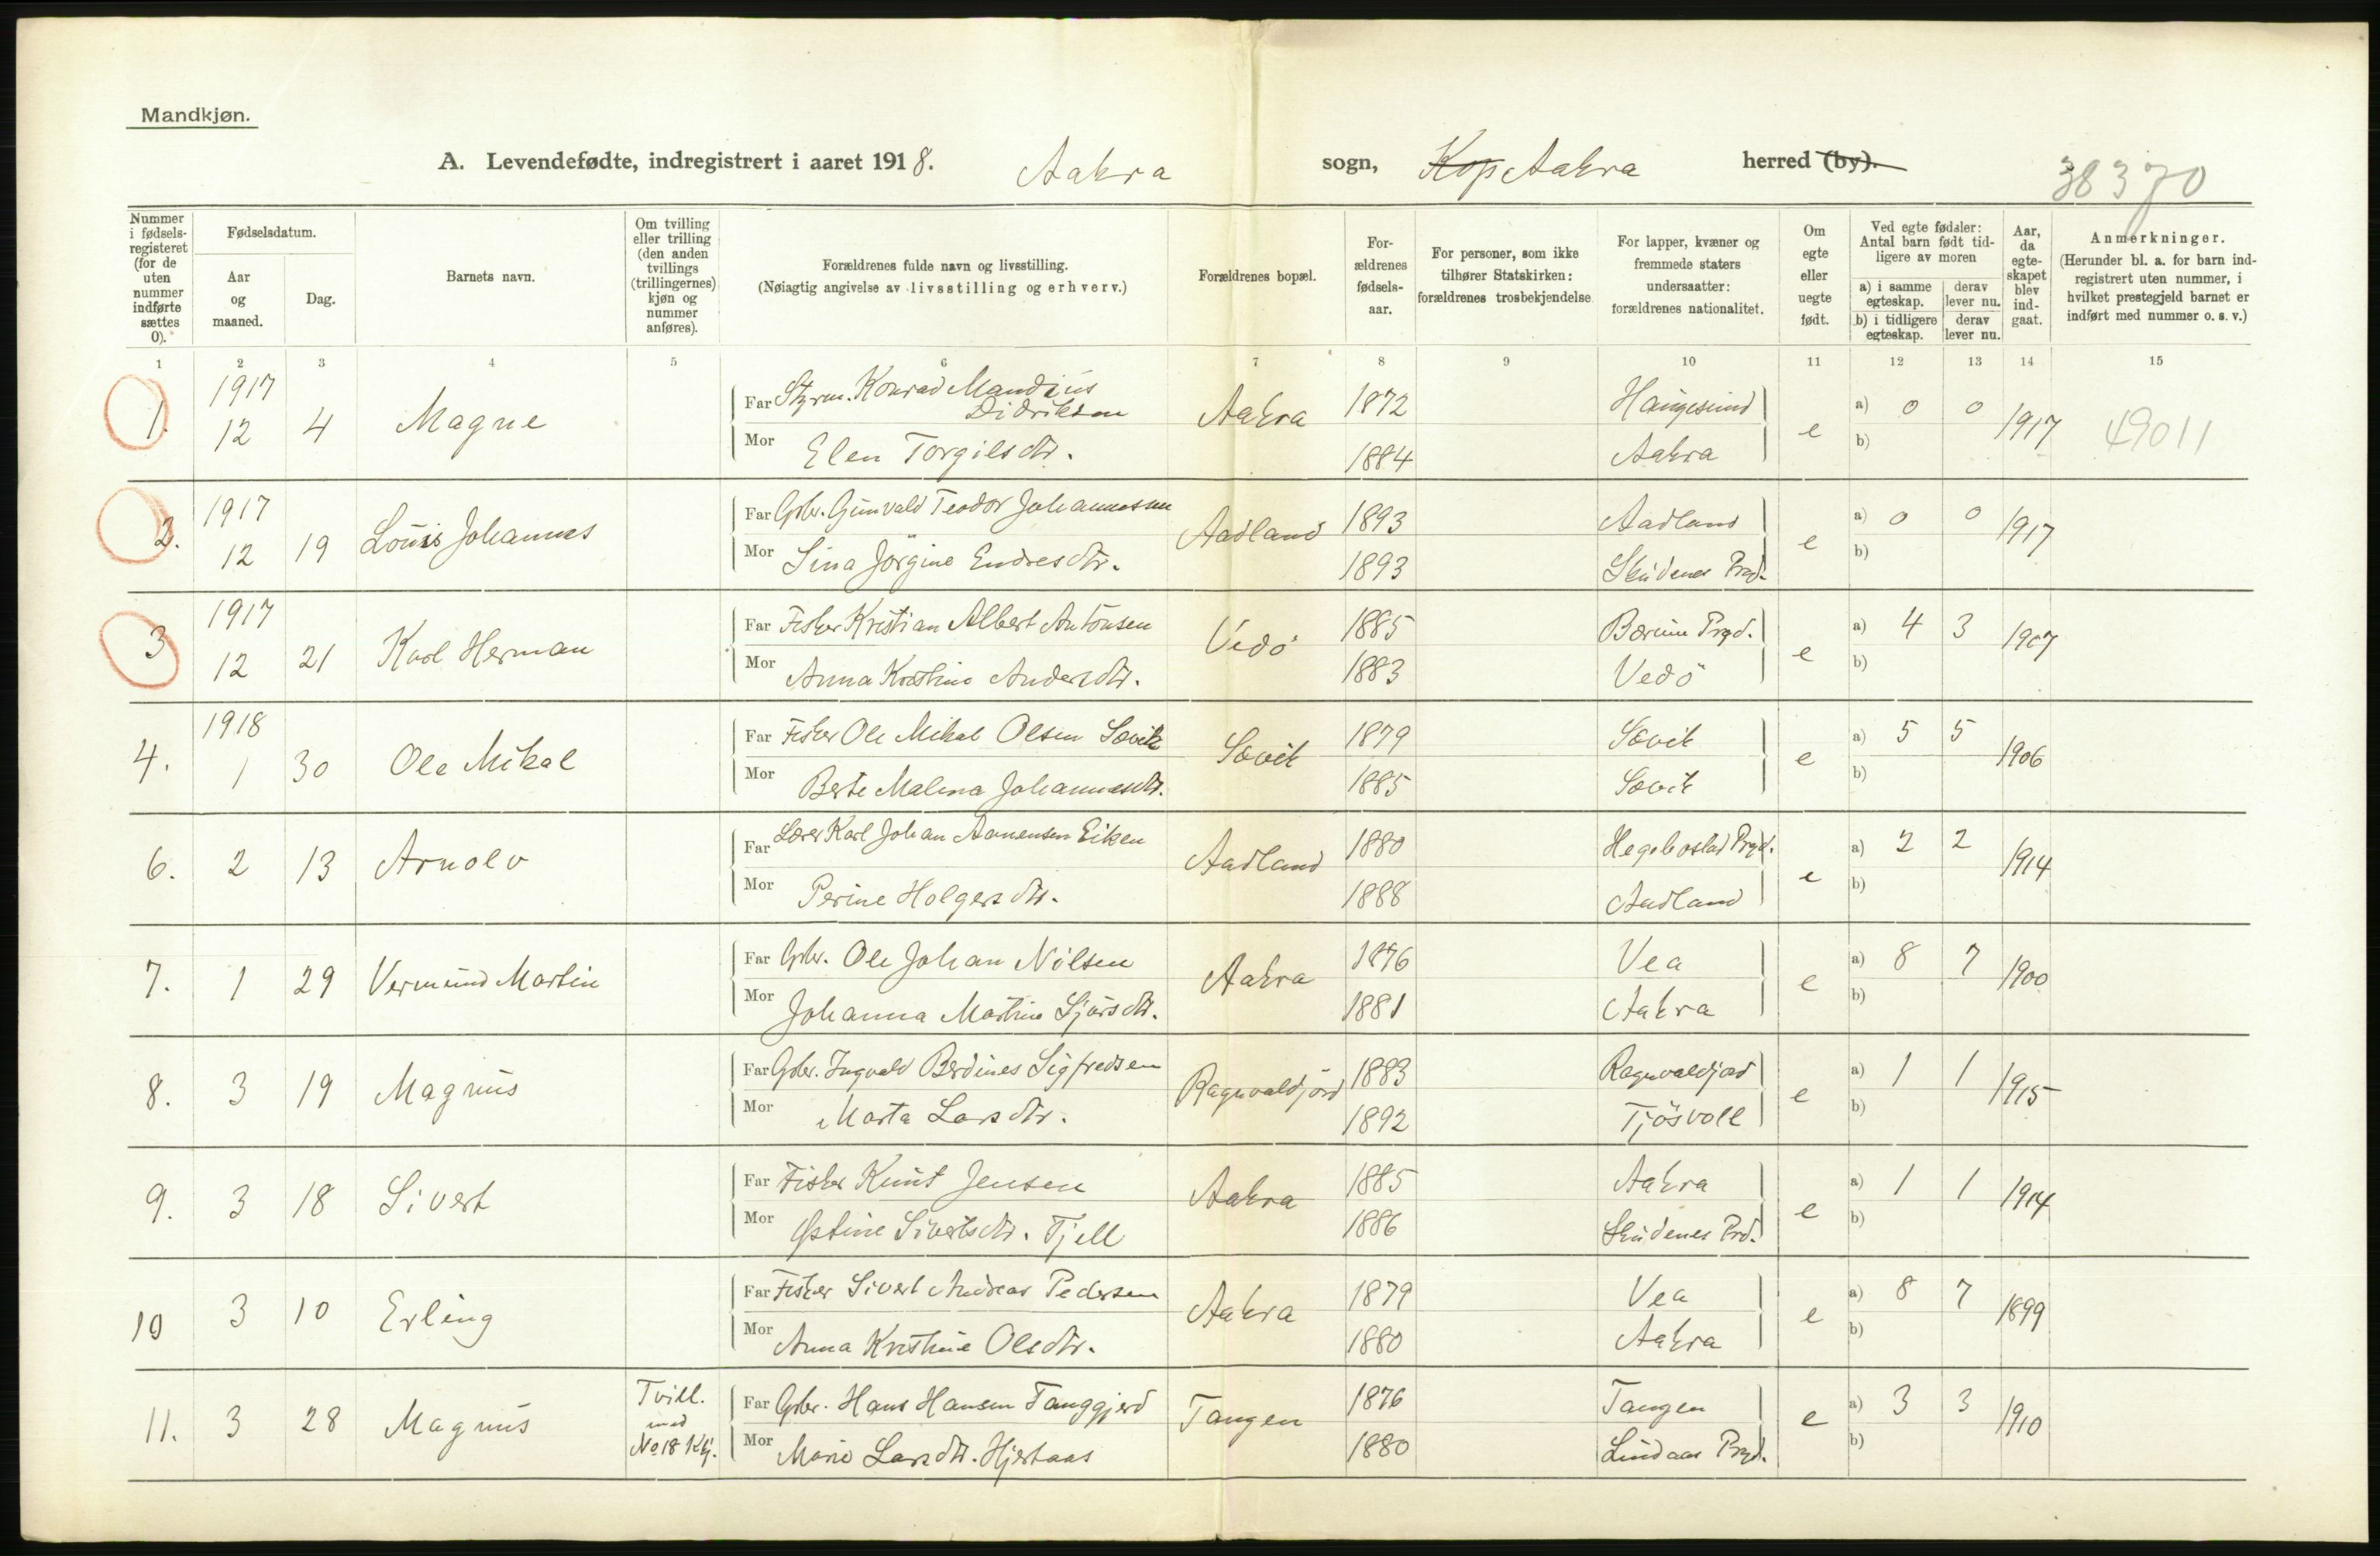 Mandkjøn.
A. Levendefødte, indregistrert i aaret 1918. Aakra sogn, Kop Aakra herred (by). 38370
Nummer i fødsels-registeret (for de uten nummer indførte sættes 0).
Fødselsdatum.
Aar og maaned.
Dag.
Barnets navn.
Om tvilling eller trilling (den anden tvillings (trillingernes) kjøn og nummer anføres).
Forældrenes fulde navn og livsstilling.
(Nøiagtig angivelse av livsstilling og erhverv.)
Forældrenes bopæl.
For-ældrenes fødsels-aar.
For personer, som ikke tilhører Statskirken: forældrenes trosbekjendelse.
For lapper, kvæner og fremmede staters undersaatter: forældrenes nationalitet.
Om egte eller uegte født.
Ved egte fødsler: Antal barn født tid-ligere av moren
a) i samme egteskap. derav lever nu.
b) i tidligere egteskap. derav lever nu.
Aar, da egte-skapet blev ind-gaat.
Anmerkninger.
(Herunder bl. a. for barn ind-registrert uten nummer, i hvilket prestegjeld barnet er indført med nummer o. s. v.)
1 2 3 4 5 6 7 8 9 10 11 12 13 14 15
1. 1917 12 4 Magne Far Styrm. Konrad Mandius Didriksen Aakra 1872 Haugesund e a) 0 0 1917 49011
Mor Elen Torgilsdtr. 1884 Aakra b)
2. 1917 12 19 Louis Johannes Far Gbr. Gunvald Teodor Johannessen Aadland 1893 Aadland e a) 0 0 1917
Mor Sina Jørgine Endresdtr. 1893 Skudenes Prgd. b)
3 1917 12 21 Karl Herman Far Fisker Kristian Albert Antonsen Vedö 1885 Bærum Prgd. e a) 4 3 1907
Mor Anna Kristine Andersdtr. 1883 Vedö b)
4. 1918 1 30 Ole Mikal Far Fisker Ole Mikal Olsen Sævik Sævik 1879 Sævik e a) 5 5 1906
Mor Berte Malena Johannesdtr. 1885 Sævik b)
6. 2 13 Arnolv Far Lærer Karl Johan Aanensen Eiken Aadland 1880 Hegebostad Prgd. e a) 2 2 1914
Mor Perine Holgersdtr. 1888 Aadland b)
7. 1 29 Vermund Martin Far Gbr. Ole Johan Nilsen Aakra 1876 Vea e a) 8 7 1900
Mor Johanna Martine Sjursdtr. 1881 Aakra b)
8. 3 19 Magnus Far Gbr. Ingvald Berdines Sigfredsen Ragnvaldjord 1883 Ragnvaldjord e a) 1 1 1915
Mor Marta Larsdtr. 1892 Tjösvoll b)
9. 3 18 Sivert Far Fisker Knut Jensen Aakra 1885 Aakra e a) 1 1 1914
Mor Østine Sivertsdtr. Tjell 1886 Skudenes Prd. b)
10 3 10 Erling Far Fisker Sivert Andreas Pedersen Aakra 1879 Vea e a) 8 7 1899
Mor Anna Kristine Olsdtr. 1880 Aakra b)
11. 3 28 Magnus Tvill. med No 18 Kkj. Far Gbr. Hans Hansen Tanggjerd Tangen 1876 Tangen e a) 3 3 1910
Mor Marie Larsdtr. Hjertaas 1880 Lindaas Prgd. b)